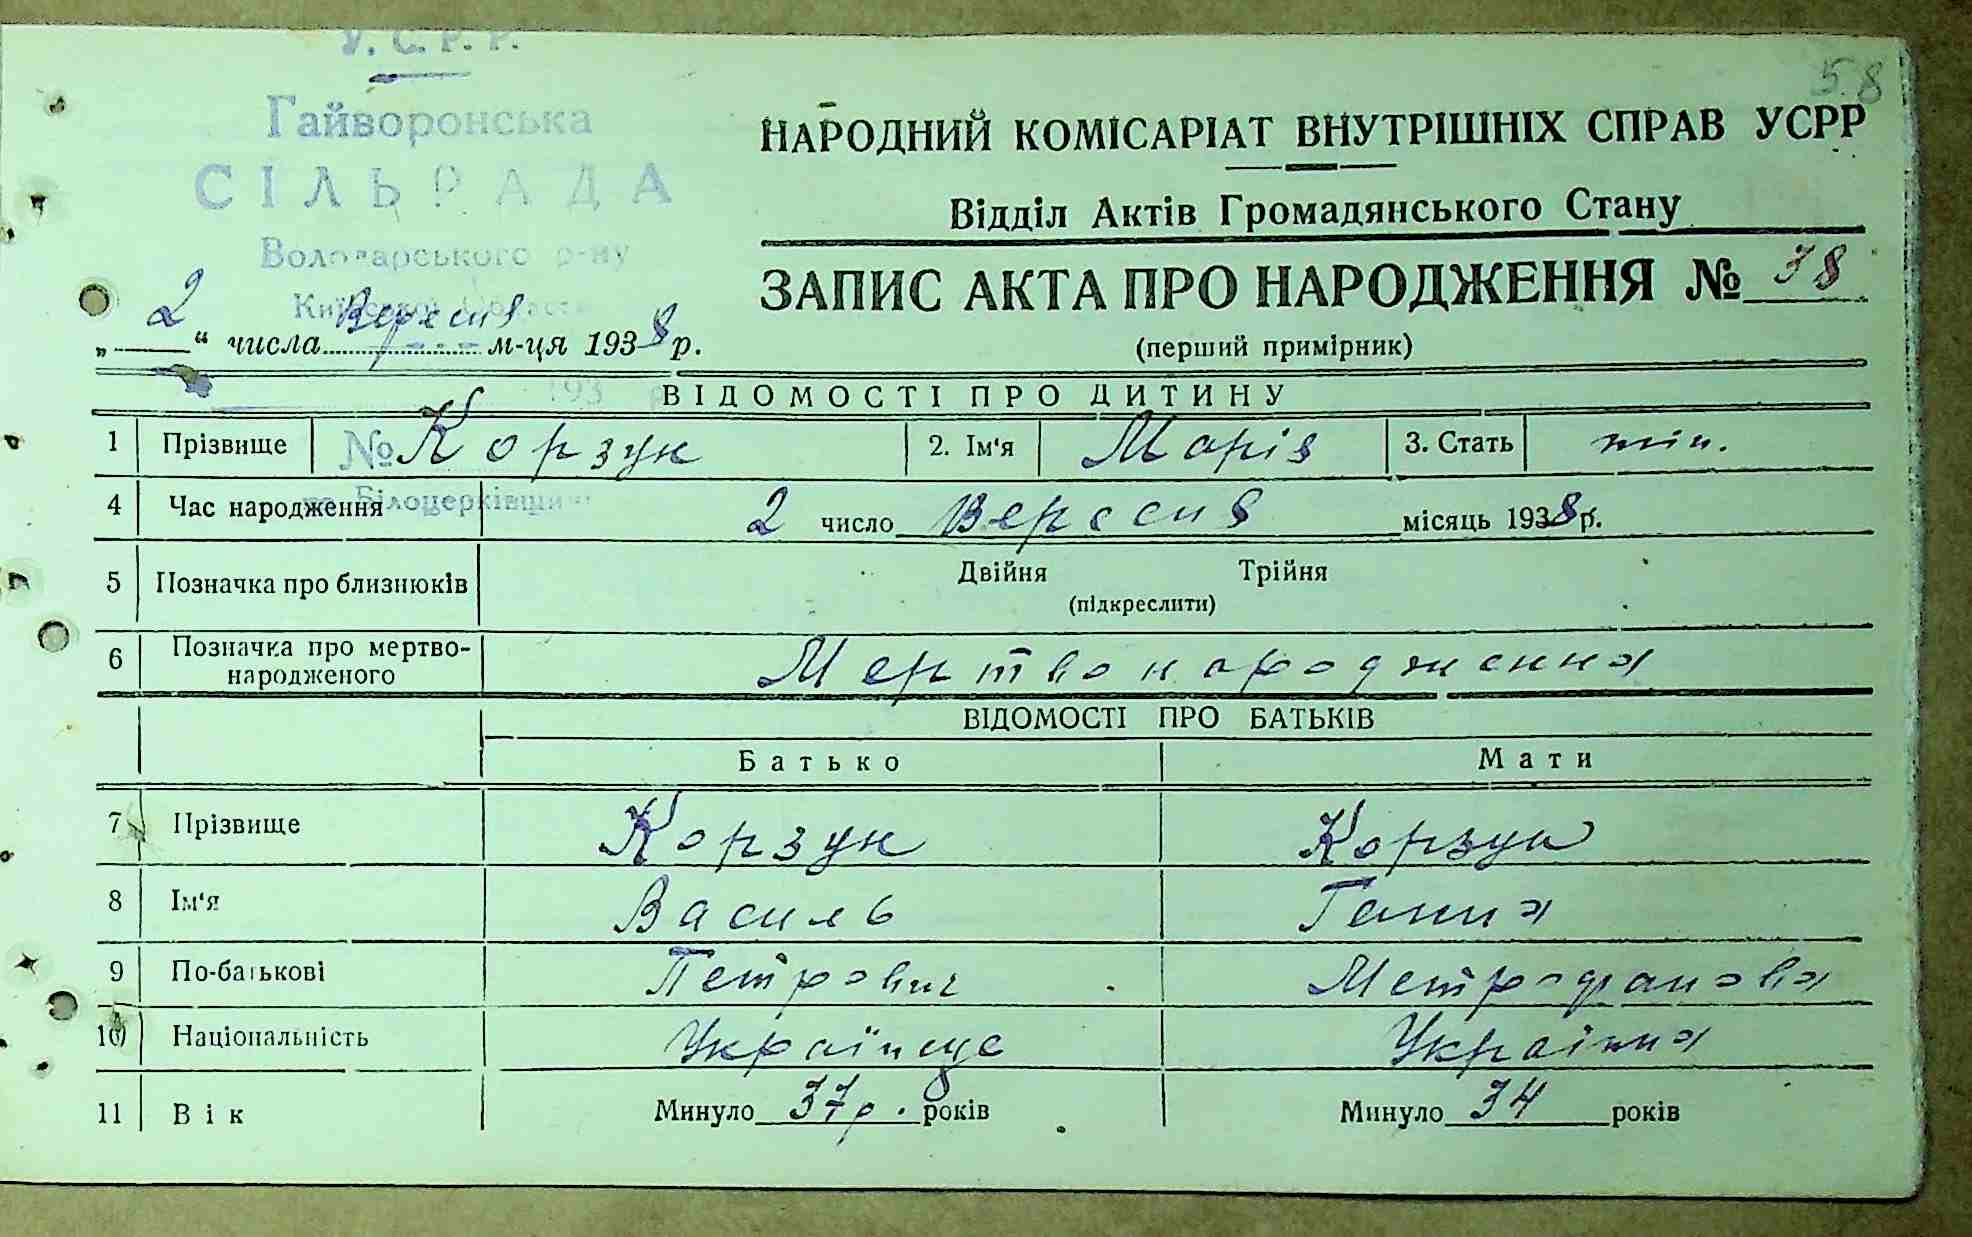 У. С. Р. Р.
58
Гайворонська
СІЛЬРАДА
Володарського р-ну
Київської області
НАРОДНИЙ КОМІСАРІАТ ВНУТРІШНІХ СПРАВ УСРР
Відділ Актів Громадянського Стану
ЗАПИС АКТА ПРО НАРОДЖЕННЯ № 38
(перший примірник)
„2“ числа Вересня м-ця 1938 р.
193 р
ВІДОМОСТІ ПРО ДИТИНУ
1 Прізвище № Корзун 2. Ім'я Марія 3. Стать жін.
по Білоцерківщині
4 Час народження 2 число Вересня місяць 1938 р.
5 Позначка про близнюків Двійня Трійня
(підкреслити)
6 Позначка про мертво-
народженого Мертвонародження
ВІДОМОСТІ ПРО БАТЬКІВ
Батько Мати
7 Прізвище Корзун Корзун
8 Ім'я Василь Ганна
9 По-батькові Петрович Метрофанова
10 Національність Українце Україна
11 Вік Минуло 37 р. років Минуло 34 років